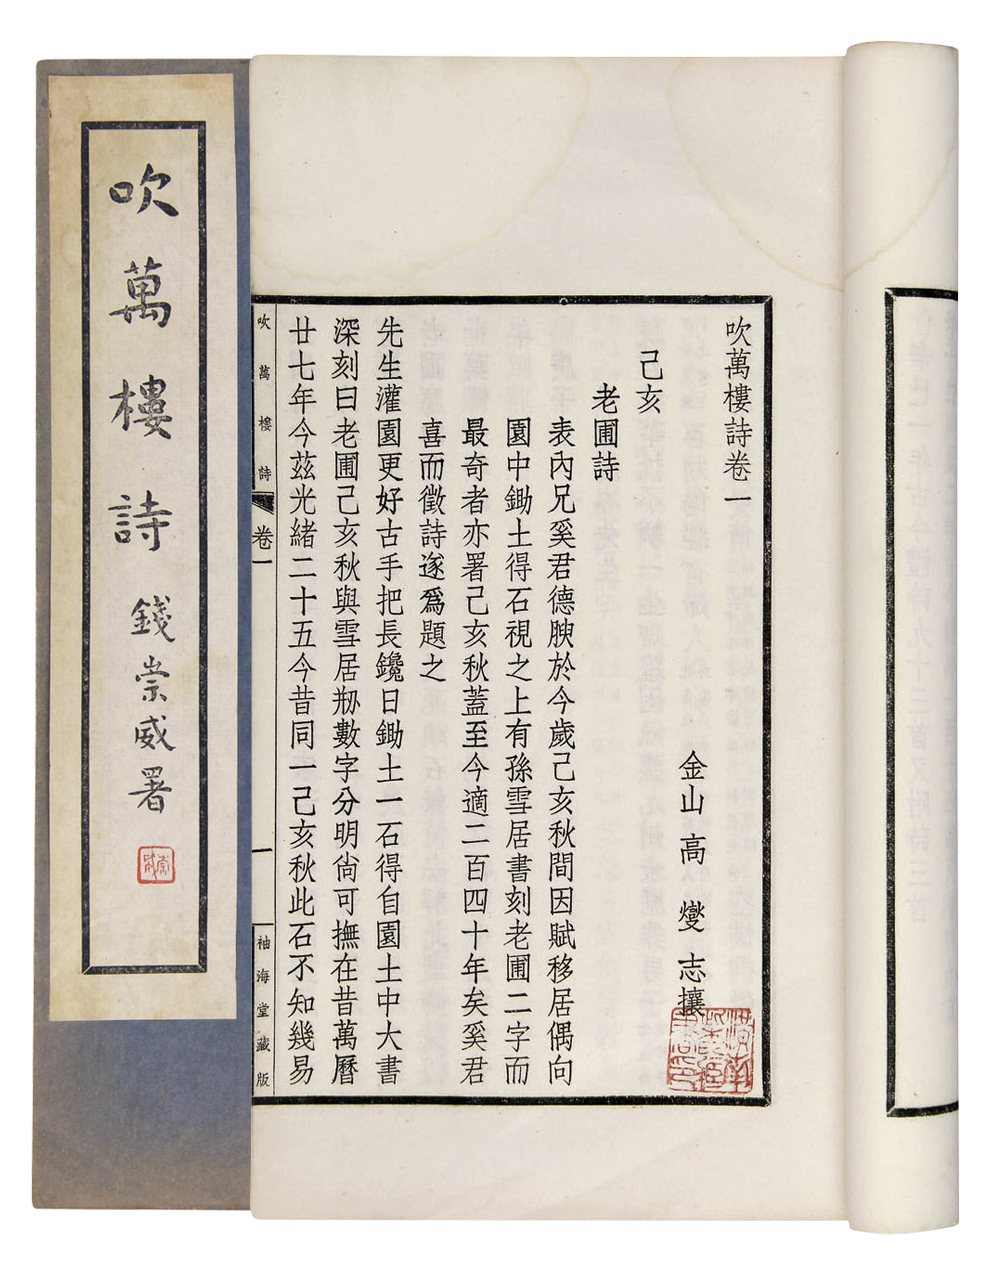 吹萬樓詩卷一
金山高燮志攘
己亥
老圃詩
表內兄奚君德腴於今歲己亥秋間因賦移居偶向
園中鋤土得石視之上有孫雪居書刻老圃二字而
最奇者亦署己亥秋蓋至今適二百四十年矣奚君
喜而徵詩遂爲題之
先生灌園更好古手把長鑱日鋤土一石得自園土中大書
深刻曰老圃己亥秋與雪居刱數字分明尙可撫在昔萬曆
廿七年今茲光緒二十五今昔同一己亥秋此石不知幾易
吹萬樓詩
卷一
一
袖海堂藏版
吹萬樓詩
錢崇威署